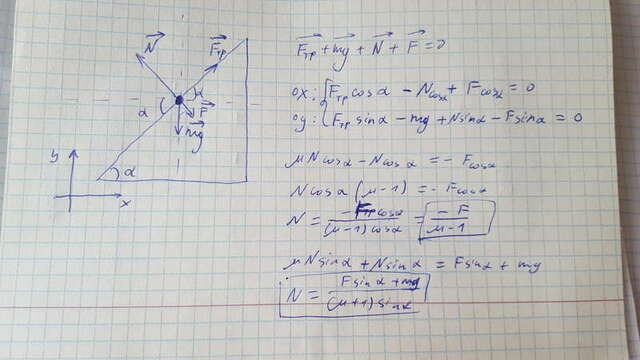 N⃗
F⃗тр
α
α
F⃗
mg⃗
y
α
x
F⃗тр + mg⃗ + N⃗ + F⃗ = 0
ox: { Fтр cosα - N cosα + F cosα = 0
oy: { Fтр sinα - mg + N sinα - F sinα = 0
μN cosα - N cosα = - F cosα
N cosα (μ-1) = - F cosα
N = - Fтр cosα / (μ-1) cosα = - F / μ-1
μN sinα + N sinα = F sinα + mg
N = F sinα + mg / (μ+1) sinα